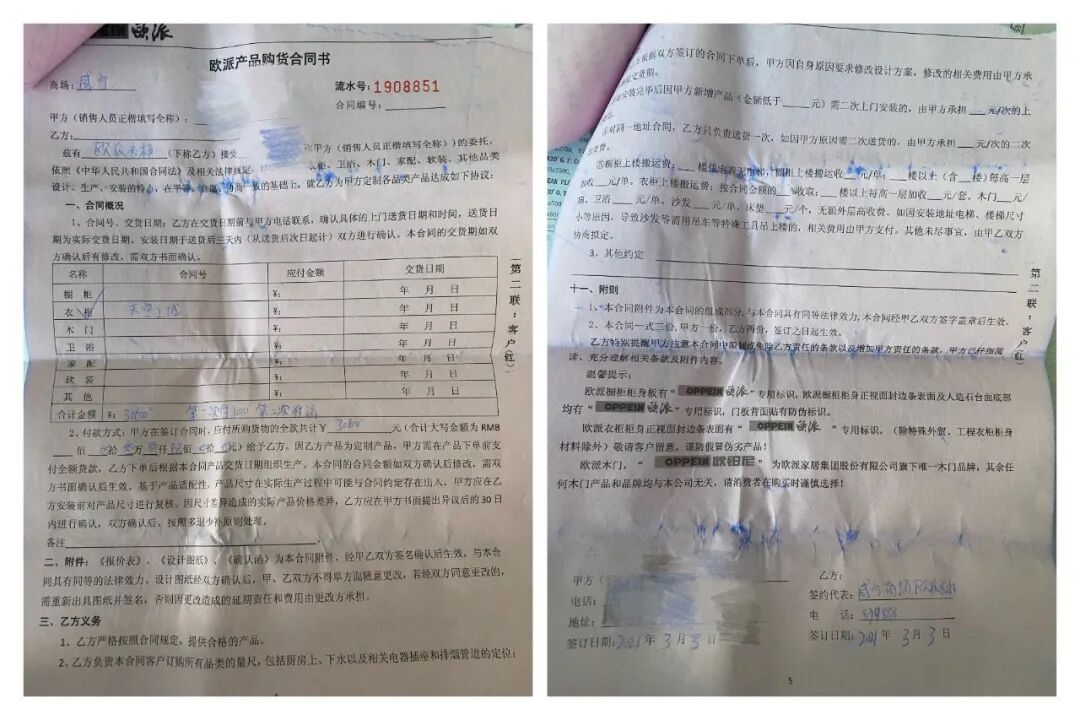 OPPEIN 欧派
欧派产品购货合同书
商场：咸宁
流水号：1908851
合同编号：
甲方（销售人员正楷填写全称）：
乙方：
兹有 欧派衣柜 （下称乙方）接受 甲方（销售人员正楷填写全称）)的委托，
依照《中华人民共和国合同法》及相关法律规定， 衣柜、卫浴、木门、家配、软装、其他品类
设计、生产、安装的特点，在平等、自愿、协商一致的基础上，就乙方为甲方定制各类产品达成如下协议：
一、合同概况
1、合同号、交货日期：乙方在交货日期前与甲方电话联系，确认具体的上门送货日期和时间，送货日
期为实际交货日期。安装日期于送货后三天内（从送货后次日起计）双方进行确认。本合同的交货期如双
方确认后有修改，需双方书面确认。
名称 合同号 应付金额 交货日期
橱 柜 ¥： 年 月 日
衣 柜 天空之城 ¥： 年 月 日
木 门 ¥： 年 月 日
卫 浴 ¥： 年 月 日
家 配 ¥： 年 月 日
软 装 ¥： 年 月 日
其 他 ¥： 年 月 日
合计金额 ¥：30600 第一次付 第二次付
第二联：客户(红)
2、付款方式：甲方在签订合同时，应付所购货物的全款共计¥ 30600 元(合计大写金额为 RMB
佰 拾 万 仟 佰 拾 元）给予乙方。因乙方产品为定制产品，甲方需在产品下单前支
付全额货款，乙方下单后根据本合同产品交货日期组织生产。本合同的合同金额如双方确认后修改，需双
方书面确认后生效。基于产品适配性，产品尺寸在实际生产过程中可能与合同约定存在出入，甲方应在乙
方安装前对产品尺寸进行复核。因尺寸差异造成的实际产品价格差异，乙方应在甲方书面提出异议后的30日
内进行确认，双方确认后，按照多退少补原则处理。
备注
二、附件：《报价表》、《设计图纸》、《确认函》为本合同附件，经甲乙双方签名确认后生效，与本合
同具有同等的法律效力。设计图纸经双方确认后，甲、乙双方不得单方面随意更改，若经双方同意更改的，
需重新出具图纸并签名，否则因更改造成的延期责任和费用由更改方承担。
三、乙方义务
1、乙方严格按照合同规定，提供合格的产品。
2、乙方负责本合同客户订购所有品类的量尺，包括厨房上、下水以及相关电器插座和排烟管道的定位；
根据双方签订的合同下单后，甲方因自身原因要求修改设计方案，修改的相关费用由甲方承
交货期。
安装完毕后因甲方新增产品（金额低于 元）需二次上门安装的，由甲方承担 元/次的上
④对同一地址合同，乙方只负责送货一次，如因甲方原因需二次送货的，由甲方承担 元/次的二次
送货费。
⑤橱柜上楼搬运费： 楼住宅若无电梯，橱柜上楼搬运费加收 元/单； 楼以上（含 楼）每高一层
加收 元/单；衣柜上楼搬运费：按合同金额的 %收取； 楼以上每高一层加收 元/套，木门 元/
扇，卫浴 元/单，沙发 元/单，床垫 元/个，无额外层高收费。如因安装地址电梯、楼梯尺寸
小等原因、导致沙发等需用吊车等特殊工具吊上楼的，相关费用由甲方支付。其他未尽事宜，由甲乙双方
协商拟定。
3、其他约定
十一、附则
1、本合同附件为本合同的组成部分，与本合同具有同等法律效力，本合同经甲乙双方签字盖章后生效。
2、本合同一式三份，甲方一份，乙方两份，签订之日起生效。
乙方特别提醒甲方注意本合同中限制或免除乙方责任的条款以及增加甲方责任的条款，甲方已仔细阅
读、充分理解相关条款及附件内容。
温馨提示：
欧派橱柜柜身板有“ OPPEIN 欧派 ”专用标识，欧派橱柜柜身正视面封边条表面及人造石台面底部
均有“ OPPEIN 欧派 ”专用标识，门板背面贴有防伪标识。
欧派衣柜柜身正视面封边条表面有“ OPPEIN 欧派 ”专用标识，（除特殊外贸、工程衣柜柜身
材料除外）敬请客户留意，谨防假冒伪劣产品！
欧派木门，“ OPPEIN 欧铂尼 ”为欧派家居集团股份有限公司旗下唯一木门品牌，其余任
何木门产品和品牌均与本公司无关，请消费者在购买时谨慎选择！
第二联：客户(红)
甲方（
电话：
地址：
签订日期：2021年3月3日
乙方：
签约代表：
电 话：
签订日期：2021年3月3日
5